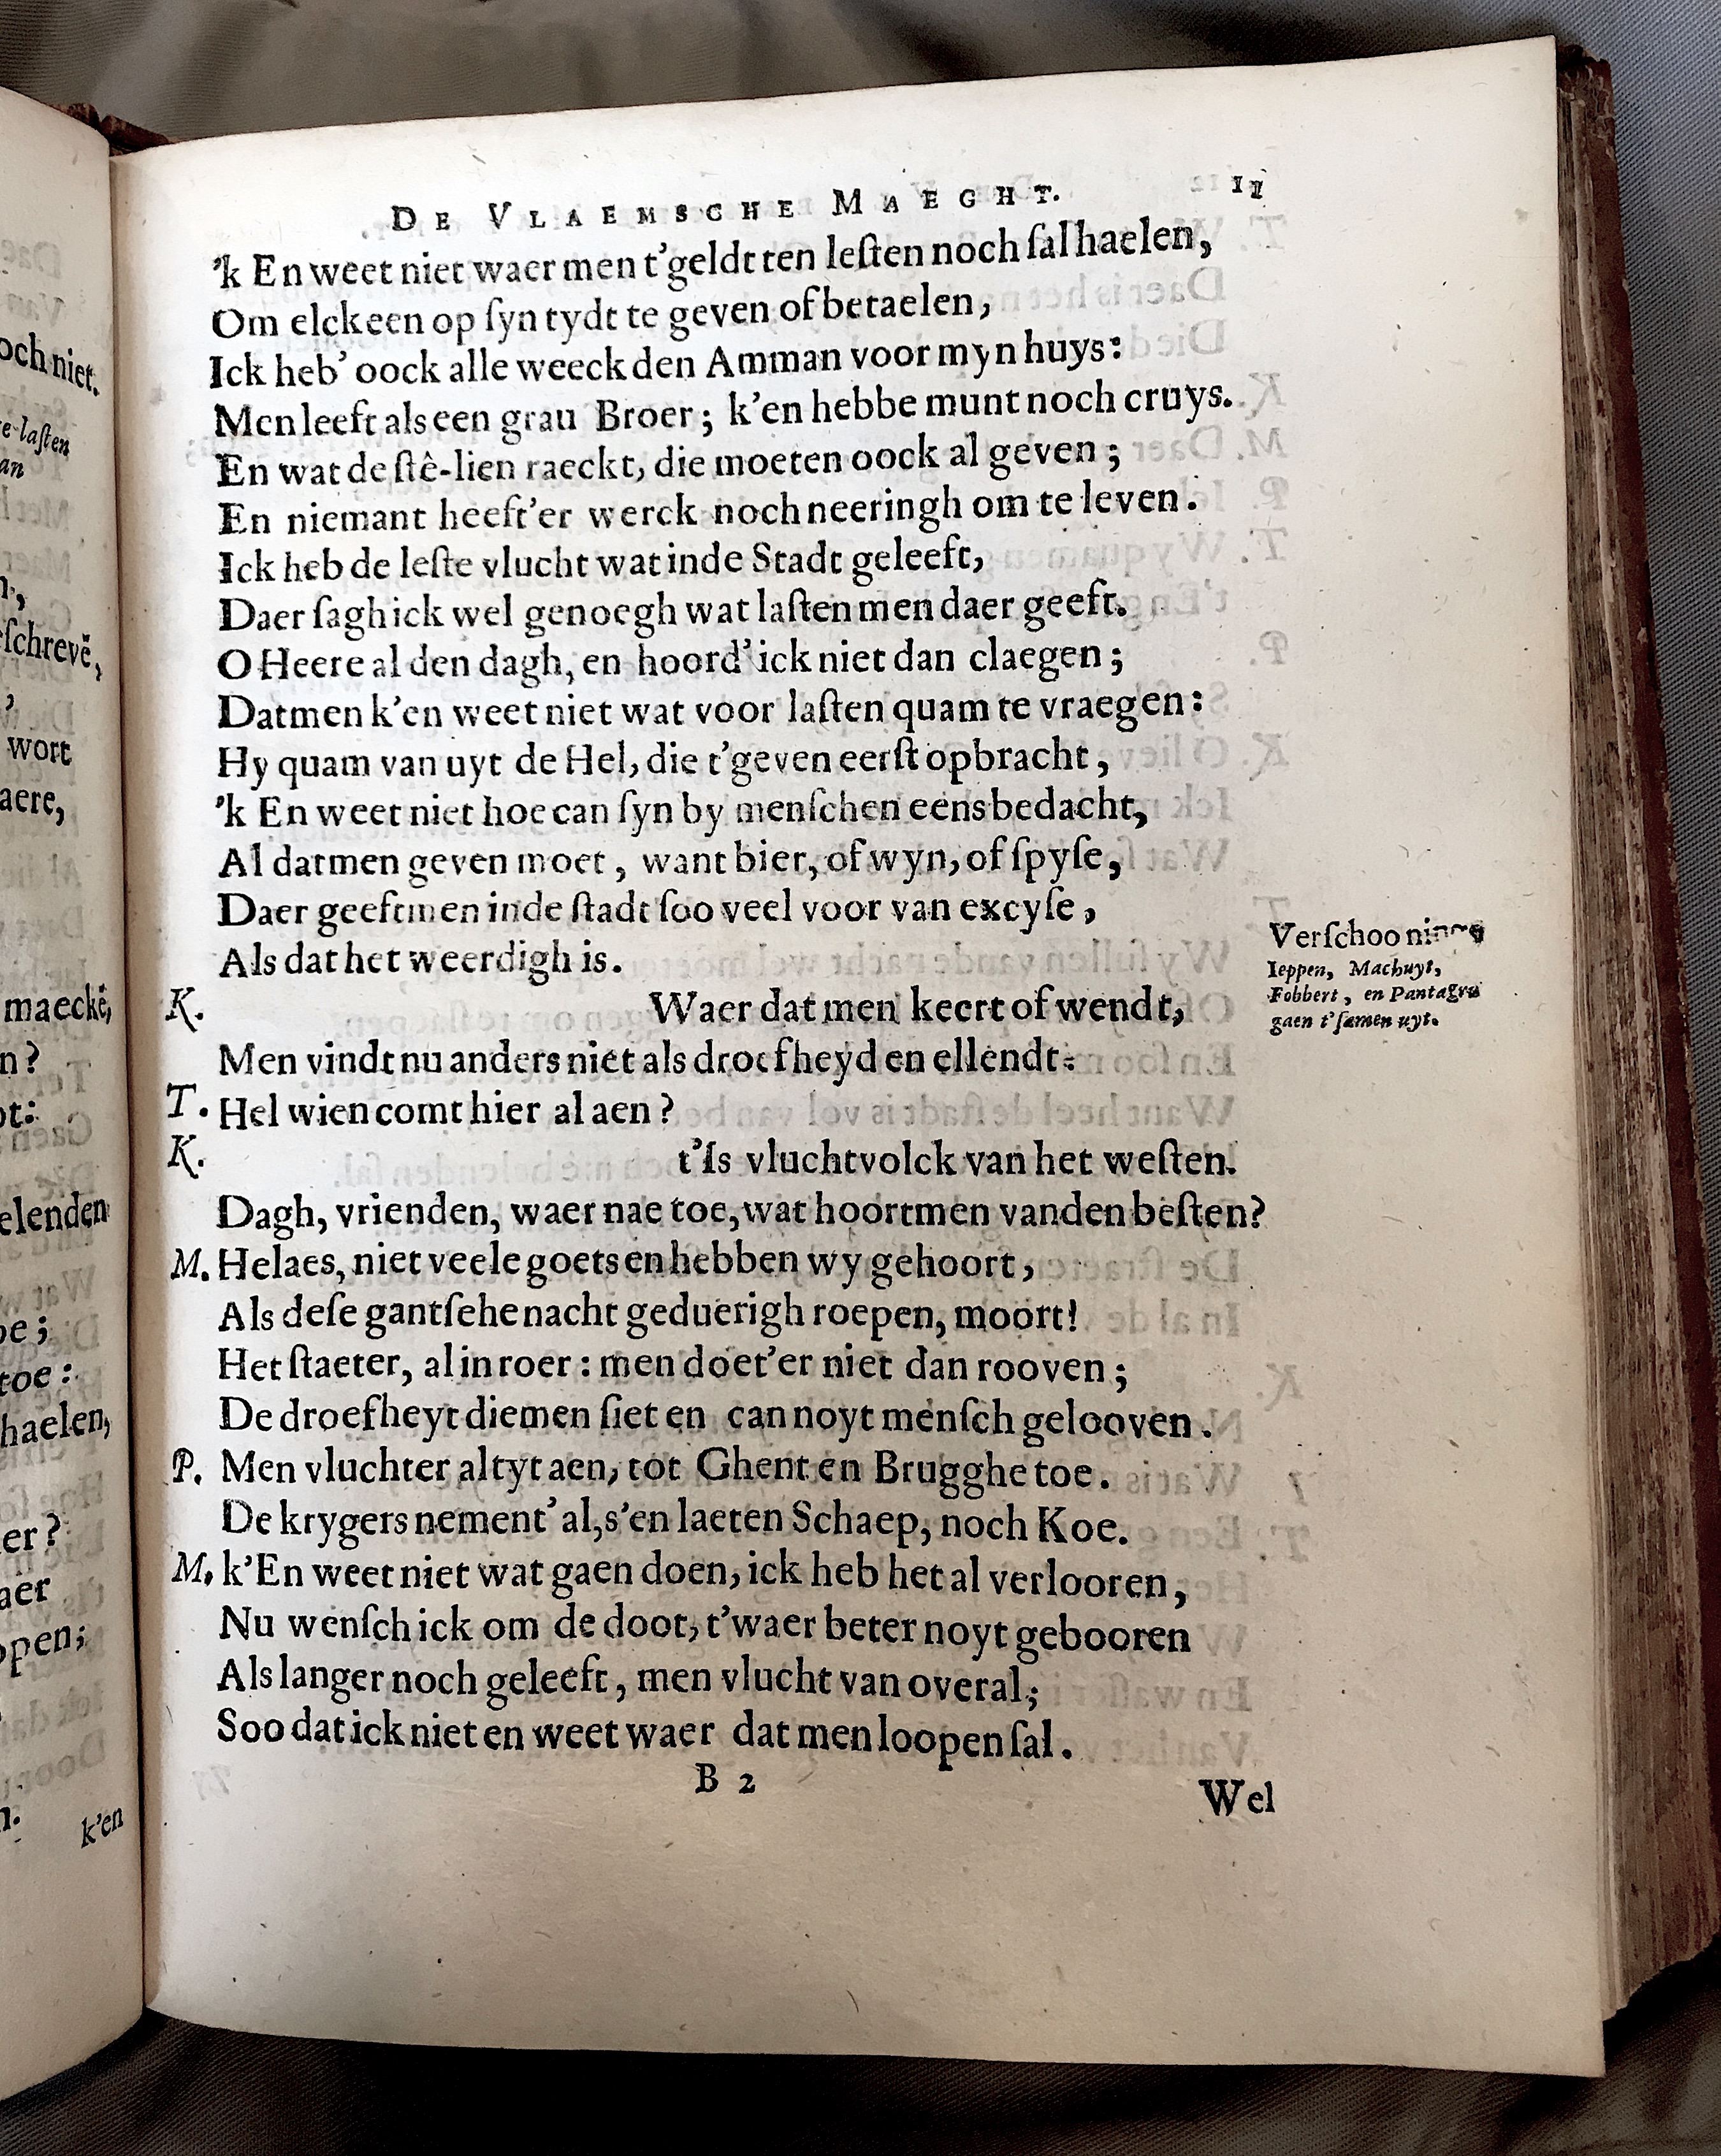 DE VLAEMSCHE MAEGHT. 11
'k En weet niet waer men t'geldt ten leſten noch ſal haelen,
Om elckeen op ſyn tydt te geven of betaelen,
Ick heb' oock alle weeck den Amman voor myn huys:
Men leeft als een grau Broer; k'en hebbe munt noch cruys.
En wat de ſtê-lien raeckt, die moeten oock al geven;
En niemant heeft'er werck noch neeringh om te leven.
Ick heb de leſte vlucht wat inde Stadt geleeft,
Daer ſagh ick wel genoegh wat laſten men daer geeft.
O Heere al den dagh, en hoord' ick niet dan claegen;
Datmen k'en weet niet wat voor laſten quam te vraegen:
Hy quam van uyt de Hel, die t'geven eerſt opbracht,
'k En weet niet hoe can ſyn by menſchen eens bedacht,
Al datmen geven moet, want bier, of wyn, of ſpyſe,
Daer geeftmen inde ſtadt ſoo veel voor van excyſe,
Als dat het weerdigh is.
Verſchooninge
Ieppen, Machuyt,
Fobbert, en Pantagru
gaen t'ſamen uyt.
K. Waer dat men keert of wendt,
Men vindt nu anders niet als droefheyd en ellendt:
T. Hel wien comt hier al aen?
K. t'Is vluchtvolck van het weſten.
Dagh, vrienden, waer nae toe, wat hoortmen vanden beſten?
M. Helaes, niet veele goets en hebben wy gehoort,
Als deſe gantſehe nacht geduerigh roepen, moort!
Het ſtaeter, al in roer: men doet'er niet dan rooven;
De droefheyt diemen ſiet en can noyt menſch gelooven.
P. Men vluchter altyt aen, tot Ghent en Brugghe toe.
De krygers nement' al, s'en laeten Schaep, noch Koe.
M. k'En weet niet wat gaen doen, ick heb het al verlooren,
Nu wenſch ick om de doot, t'waer beter noyt gebooren
Als langer noch geleeft, men vlucht van overal;
Soo dat ick niet en weet waer dat men loopen ſal.
B 2
Wel
och niet.
laſten
an
ſchrevē,
wort
aere,
maeckē,
n?
ot:
elenden
oe;
toe:
haelen,
er?
aer
open;
k'en